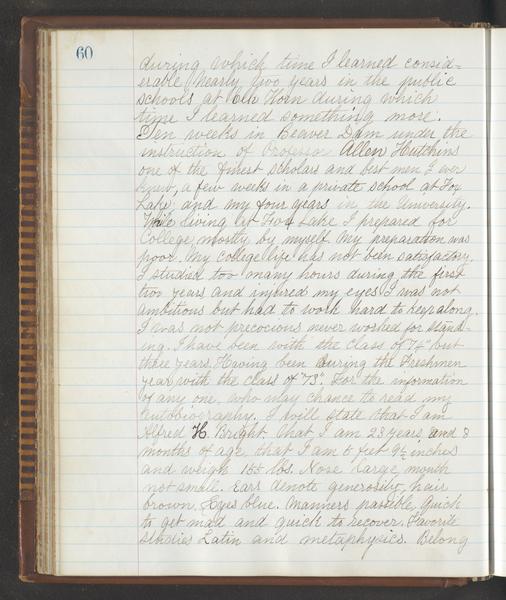 60
during which time I learned consid-
erable, Nearly two years in the public
schools at Elk Horn during which
time I learned something more.
Ten weeks in Beaver Dam under the
instruction of Professor Allen Hutchins
one of the finest scholars and best men I ever
knew, a few weeks in a private school at Fox
Lake, and my four years in the University.
While living at Fox Lake I prepared for
College, mostly by myself. My preparation was
poor. My college life has not been satisfactory.
I studied too many hours during the first
two years and injured my eyes. I was not
ambitious but had to work hard to keep along.
I was not precocious never worked for stand-
ing. I have been with the class of "74" but
three years. Having been during the Freshmen
year with the class of "73". For the information
of any one, who may chance to read my
autobiography. I will state that I am
Alfred H. Bright. That I am 23 years and 8
months of age, that I am 5 feet 9½ inches
and weigh lbs. Nose large, mouth
not small. Ears denote generosity, hair
brown, Eyes blue. Manners passible, Quick
to get mad and quick to recover. Favorite
studies Latin and metaphysics. Belong